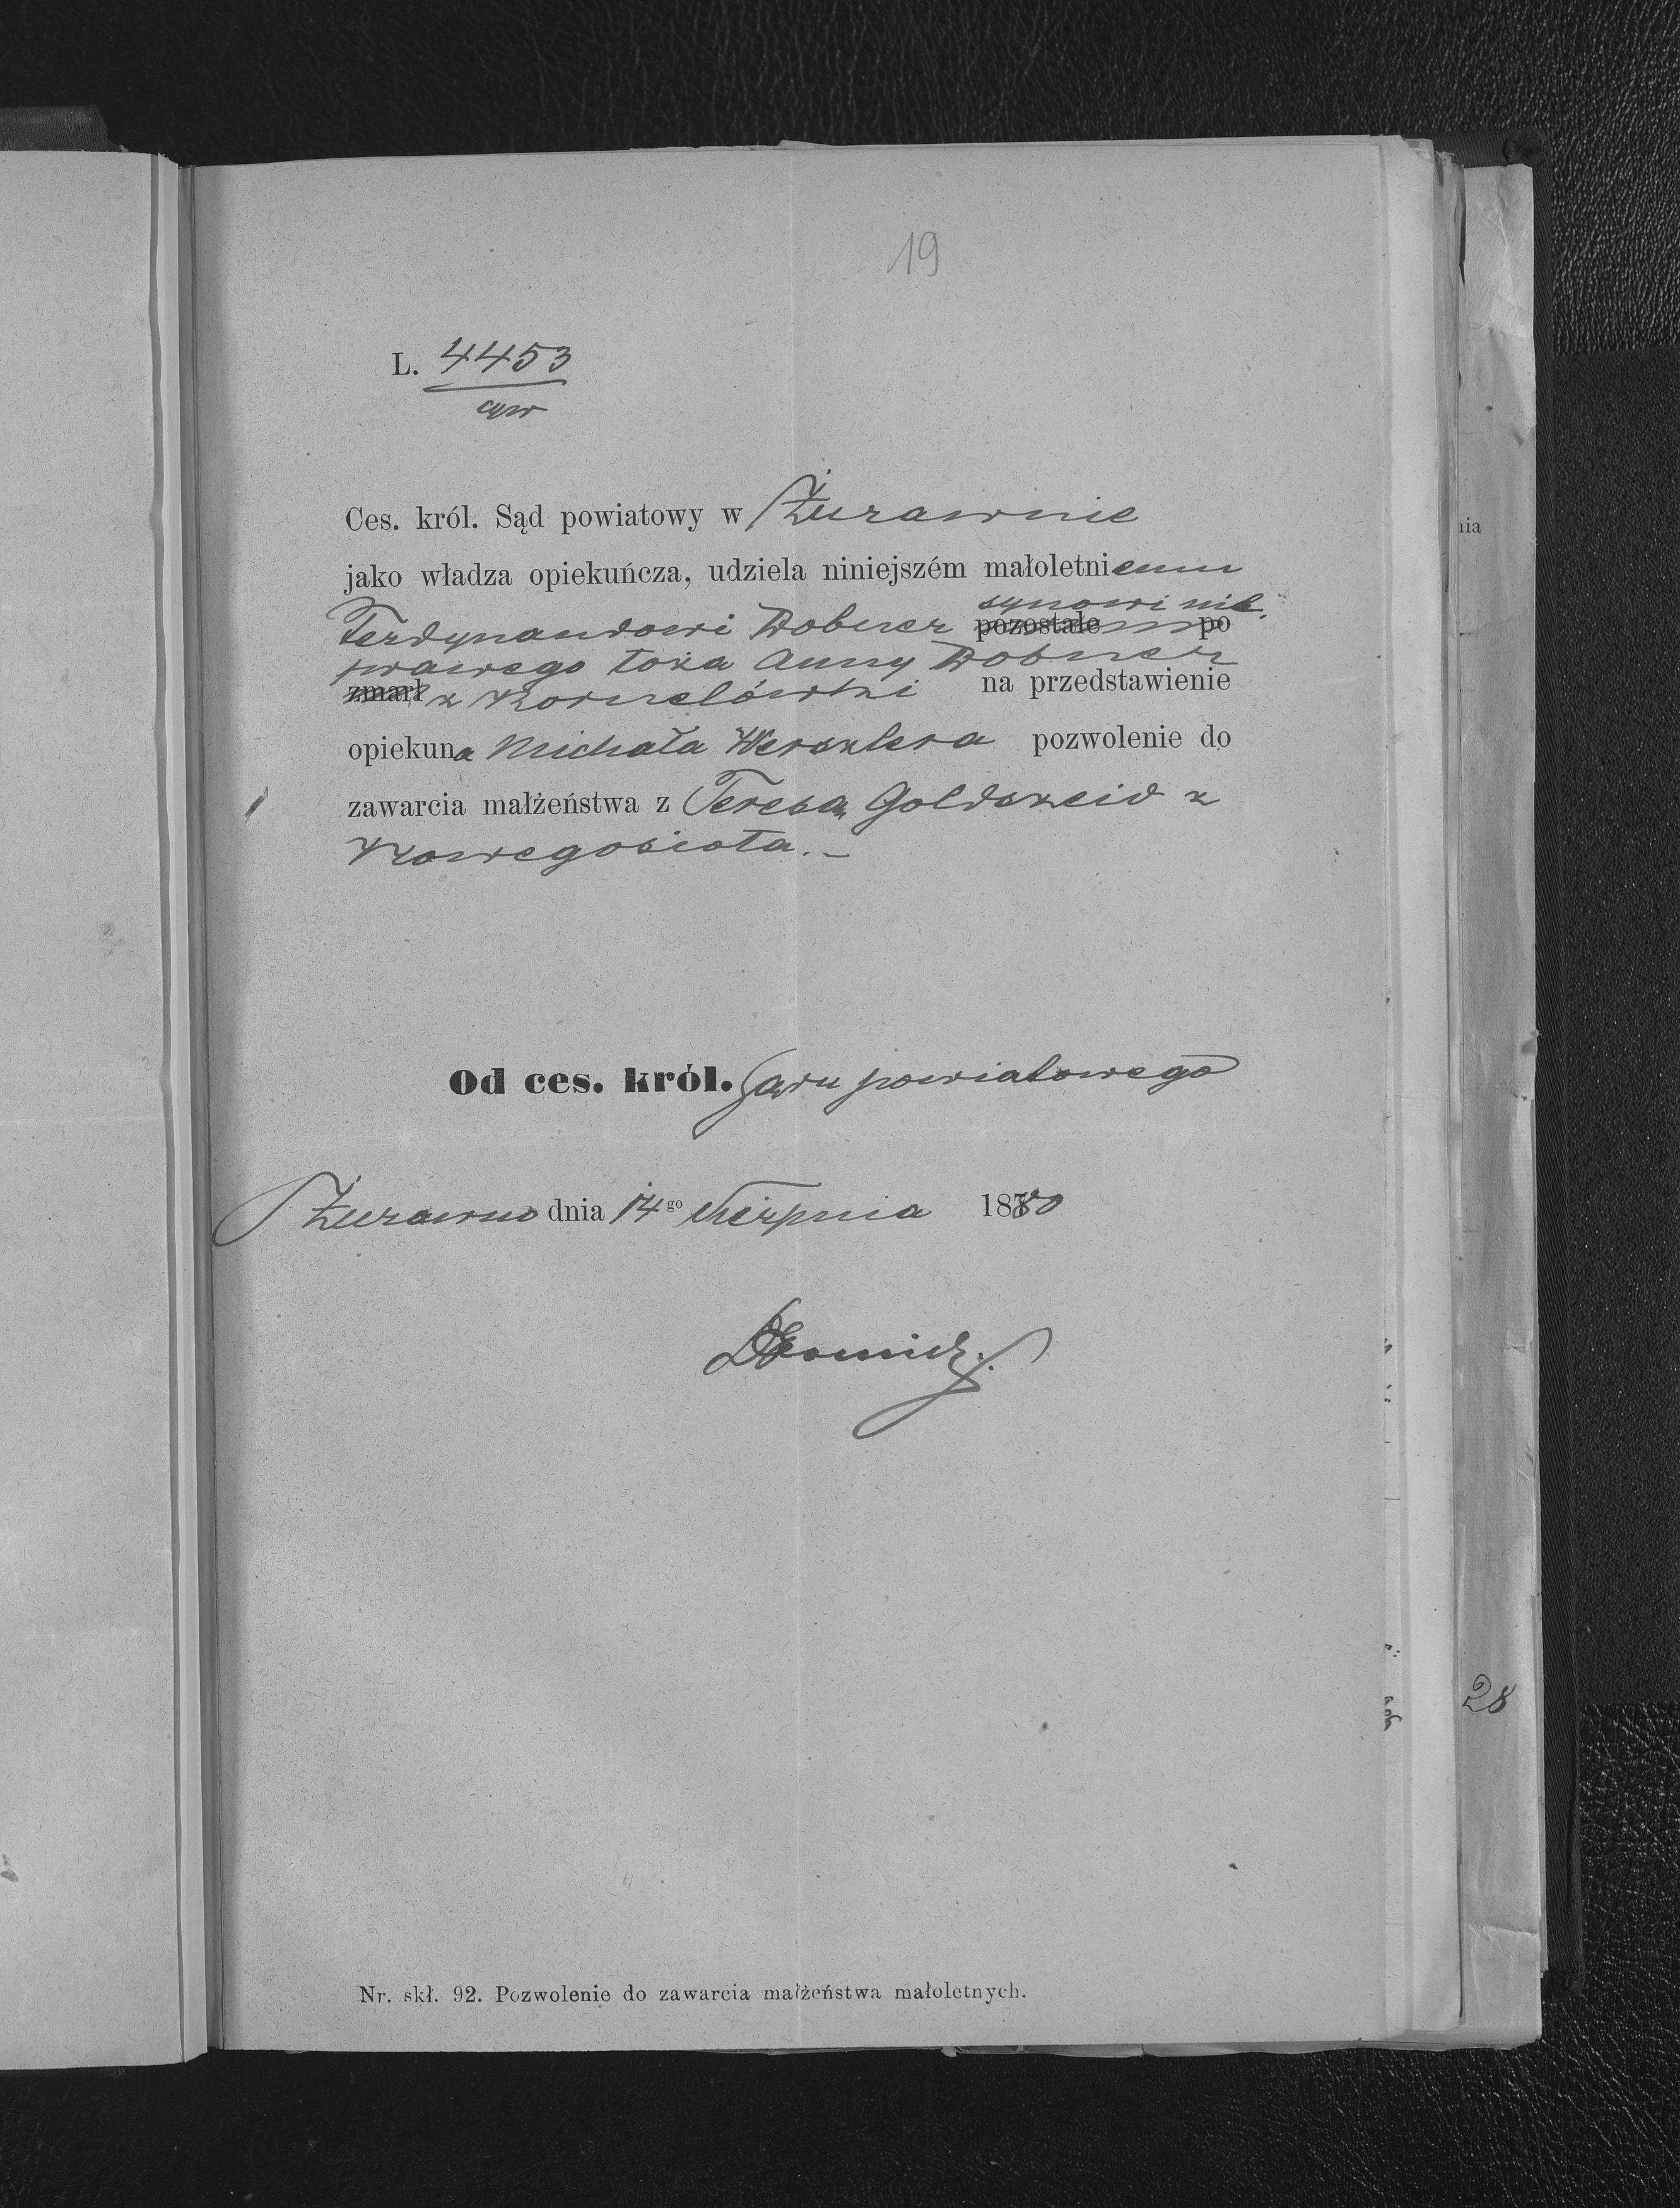 19
L. 4453
cyw
Ces. król. Sąd powiatowy w Żurawnie
jako władza opiekuńcza, udziela niniejszém małoletniemu
synowi nie
Ferdynandowi Dobner pozostałe po
prawego łoża Anny Dobner
zmarł z Kornelówki na przedstawienie
opiekuna Michała Werszlera pozwolenie do
zawarcia małżeństwa z Teresą Goldszeid z
Nowegosioła.–
Od ces. król. Sądu powiatowego
Żurawno dnia 14go Sierpnia 1880
nia
28
Nr. skł. 92. Pozwolenie do zawarcia małżeństwa małoletnych.